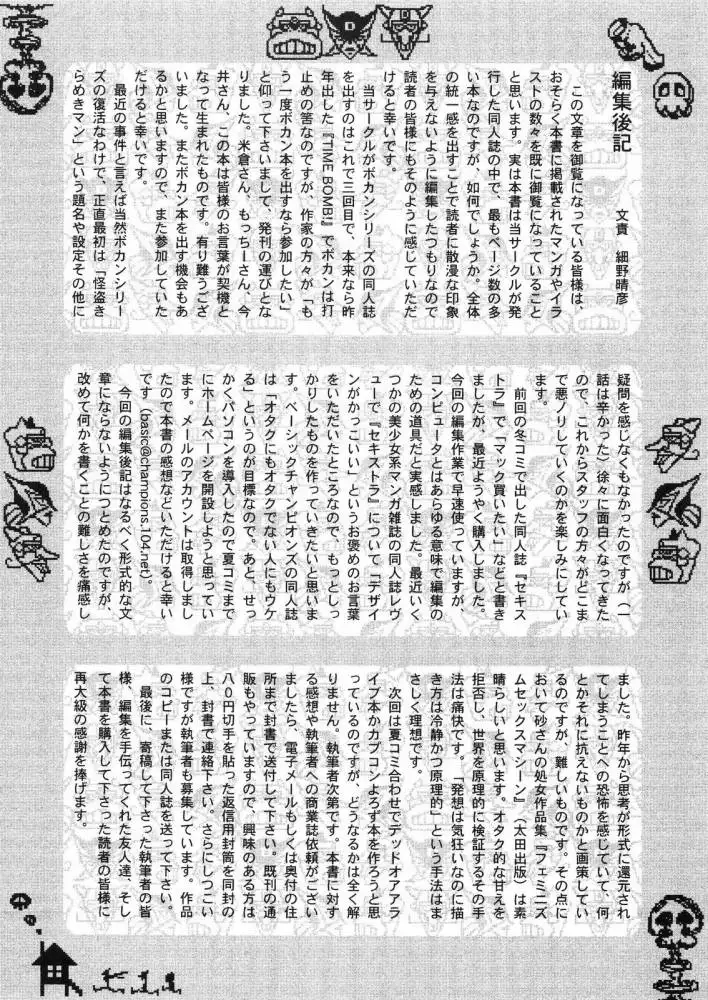 編集後記
文責　細野晴彦
　この文章を御覧になっている皆様は、
おそらく本書に掲載されたマンガやイラ
ストの数々を既に御覧になっていること
と思います。実は本書は当サークルが発
行した同人誌の中で、最もページ数の多
い本なのですが、如何でしょうか。全体
の統一感を出すことで読者に散漫な印象
を与えないように編集したつもりなので
読者の皆様にもそのように感じていただ
けると幸いです。
　当サークルがボカンシリーズの同人誌
を出すのはこれで三回目で、本来なら昨
年出した『TIME BOMB!』でボカンは打
止めの筈なのですが、作家の方々が「も
う一度ボカン本を出すなら参加したい」
と仰って下さいまして、発刊の運びとな
りました。米倉さん、もっちーさん、今
井さん、この本は皆様のお言葉が契機と
なって生まれたものです。有り難うござ
いました。またボカン本を出す機会もあ
るかと思いますので、また参加していた
だけると幸いです。
　最近の事件と言えば当然ボカンシリー
ズの復活なわけで、正直最初は「怪盗き
らめきマン」という題名や設定その他に
疑問を感じなくもなかったのですが（一
話は辛かった）徐々に面白くなってきた
ので、これからスタッフの方々がどこま
で悪ノリしていくのかを楽しみにしてい
ます。
　前回の冬コミで出した同人誌『セキス
トラ』で「マック買いたい」などと書き
ましたが、最近ようやく購入しました。
今回の編集作業で早速使っていますが、
コンピュータとはあらゆる意味で編集の
ための道具だと実感しました。最近いく
つかの美少女系マンガ雑誌の同人誌レヴ
ューで『セキストラ』について「デザイ
ンがかっこいい」というお褒めのお言葉
をいただいたところなので、もっとしっ
かりしたものを作っていきたいと思いま
す。ベーシックチャンピオンズの同人誌
は「オタクにもオタクでない人にもウケ
る」というのが目標なので。あと、せっ
かくパソコンを導入したので夏コミまで
にホームページを開設しようと思ってい
ます。メールのアカウントは取得しまし
たので本書の感想などいただけると幸い
です（basic@champions.104.net）。
　今回の編集後記はなるべく形式的な文
章にならないようにつとめたのですが、
改めて何かを書くことの難しさを痛感し
ました。昨年から思考が形式に還元され
てしまうことへの恐怖を感じていて、何
とかそれに抗えないものかと画策してい
るのですが、難しいものです。その点に
おいて砂さんの処女作品集『フェミニズ
ムセックスマシーン』（太田出版）は素
晴らしいと思います。オタク的な甘えを
拒否し、世界を原理的に検証するその手
法は痛快です。「発想は気狂いなのに描
き方は冷静かつ原理的」という手法はま
さしく理想です。
　次回は夏コミ合わせでデッドオアアラ
イブ本かカプコンよろず本を作ろうと思
っているのですが、どうなるかは全く解
りません。執筆者次第です。本書に対す
る感想や執筆者への商業誌依頼がござい
ましたら、電子メールもしくは奥付の住
所まで封書で送付して下さい。既刊の通
販もやっていますので、興味のある方は
八〇円切手を貼った返信用封筒を同封の
上、封書で連絡下さい。さらにしつこい
様ですが執筆者も募集しています。作品
のコピーまたは同人誌を送って下さい。
　最後に、寄稿して下さった執筆者の皆
様、編集を手伝ってくれた友人達、そし
て本書を購入して下さった読者の皆様に
再大級の感謝を捧げます。